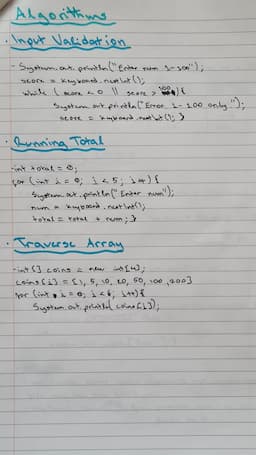 Algorithms
· Input Validation
- System.out.println("Enter num 1-100");
score = keyboard.nextInt();
while (score < 0 || score > 100){
System.out.println("Error, 1-100 only.");
score = keyboard.nextInt(); }
· Running Total
-int total = 0;
for (int i = 0; i < 5; i++) {
System.out.println("Enter num");
num = keyboard.nextInt();
total = total + num; }
· Traverse Array
-int[] coins = new int[6];
coins[i] = {1, 5, 10, 20, 50, 100, 200}
for (int i = 0; i < 6; i++){
System.out.println(coins[i]);